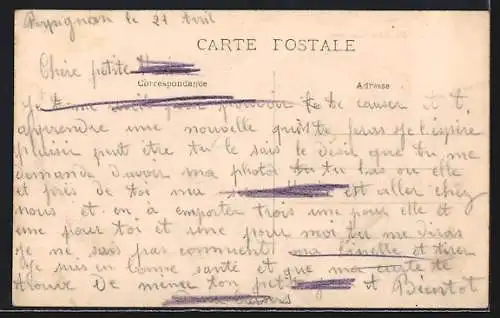 Perpignan le 21 Avril
CARTE POSTALE
Chère petite
Correspondance
Adresse
pour pouvoir te causer et t
apprendre une nouvelle qui te je l'espère
plaisir peut être tu le sais le désir que tu me
demande d'avoir ma photo tu tu las ou elle
et près de toi ma est aller chez
nous et en à emporter trois une pour elle et
une pour toi et une pour moi tu me diras
Je ne sais pas comment ma et tirer
Je suis en bonne santé et que ma carte te
trouve de meme ton et Bientot